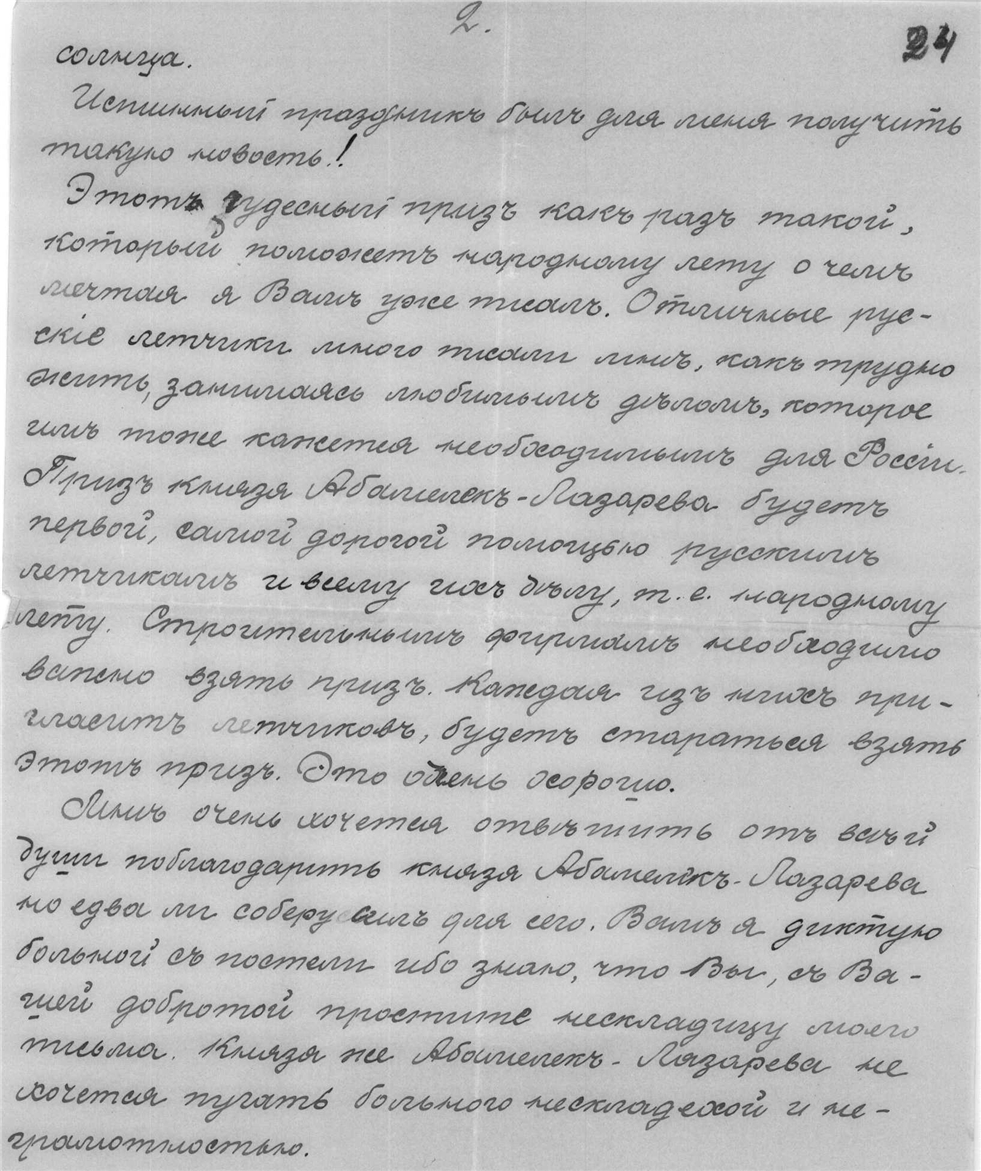 2.
24
солнца.
Истинный праздникъ былъ для меня получить
такую новость!
Этотъ чудесный призъ какъ разъ такой,
который поможетъ народному лету о чемъ
мечтая я Вамъ уже писалъ. Отличные рус-
скіе летчики много писали мнѣ, какъ трудно
жить, занимаясь любимымъ дѣломъ, которое
имъ тоже кажется необходимымъ для Россіи.
Призъ князя Абамелекъ-Лазарева будетъ
первой, самой дорогой помощью русскимъ
летчикамъ и всему ихъ дѣлу, т.е. народному
лету. Строительнымъ фирмамъ необходимо
важно взять призъ. Каждая изъ нихъ при-
гласитъ летчиковъ, будетъ стараться взять
этотъ призъ. Это очень хорошо.
Мнѣ очень хочется отвѣтить отъ всей
души поблагодарить князя Абамелекъ-Лазарева
но едва ли соберу силъ для сего. Вамъ я диктую
больной съ постели ибо знаю, что Вы, съ Ва-
шей добротой простите нескладицу моего
письма. Князя же Абамелекъ-Лазарева не
хочется пугать больного нескладехой и не-
грамотностью.